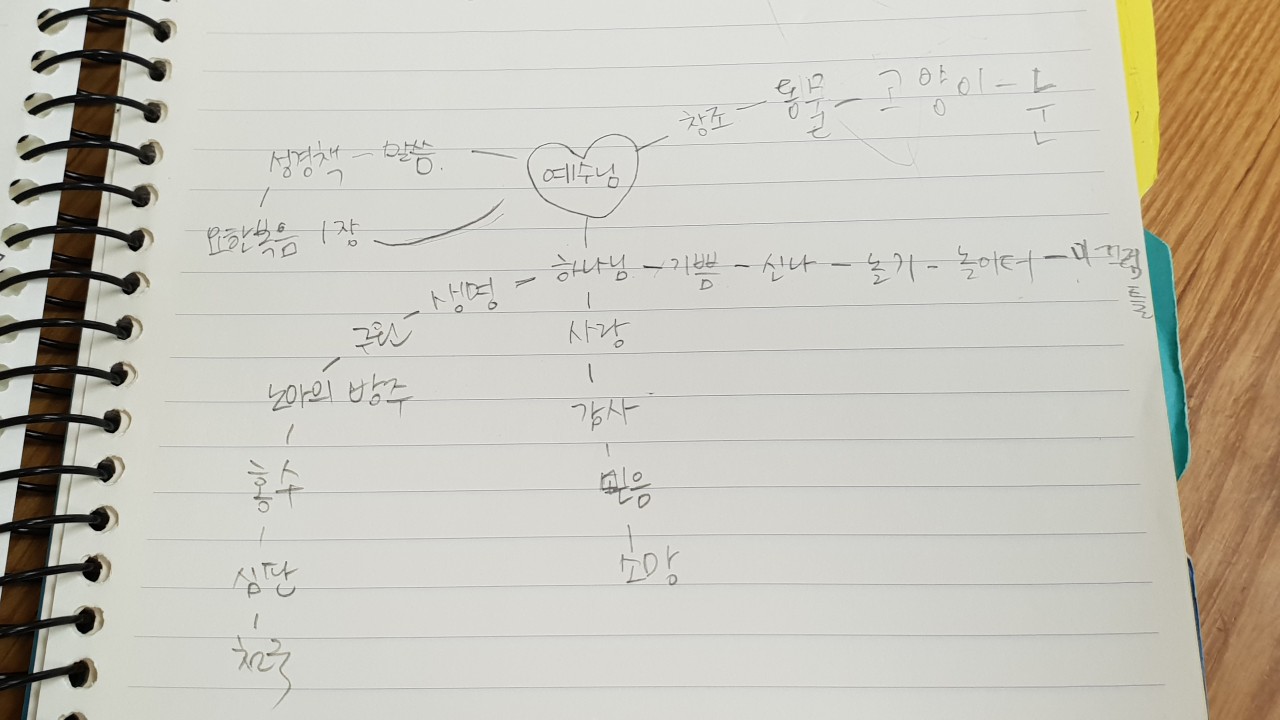 창조 - 동물 - 고양이 - 눈
성경책 - 말씀
예수님
요한복음 1장
하나님 - 기쁨 - 신나 - 놀기 - 놀이터 - 미끄럼틀
생명
구원
사랑
노아의 방주
감사
홍수
믿음
소망
심판
천국